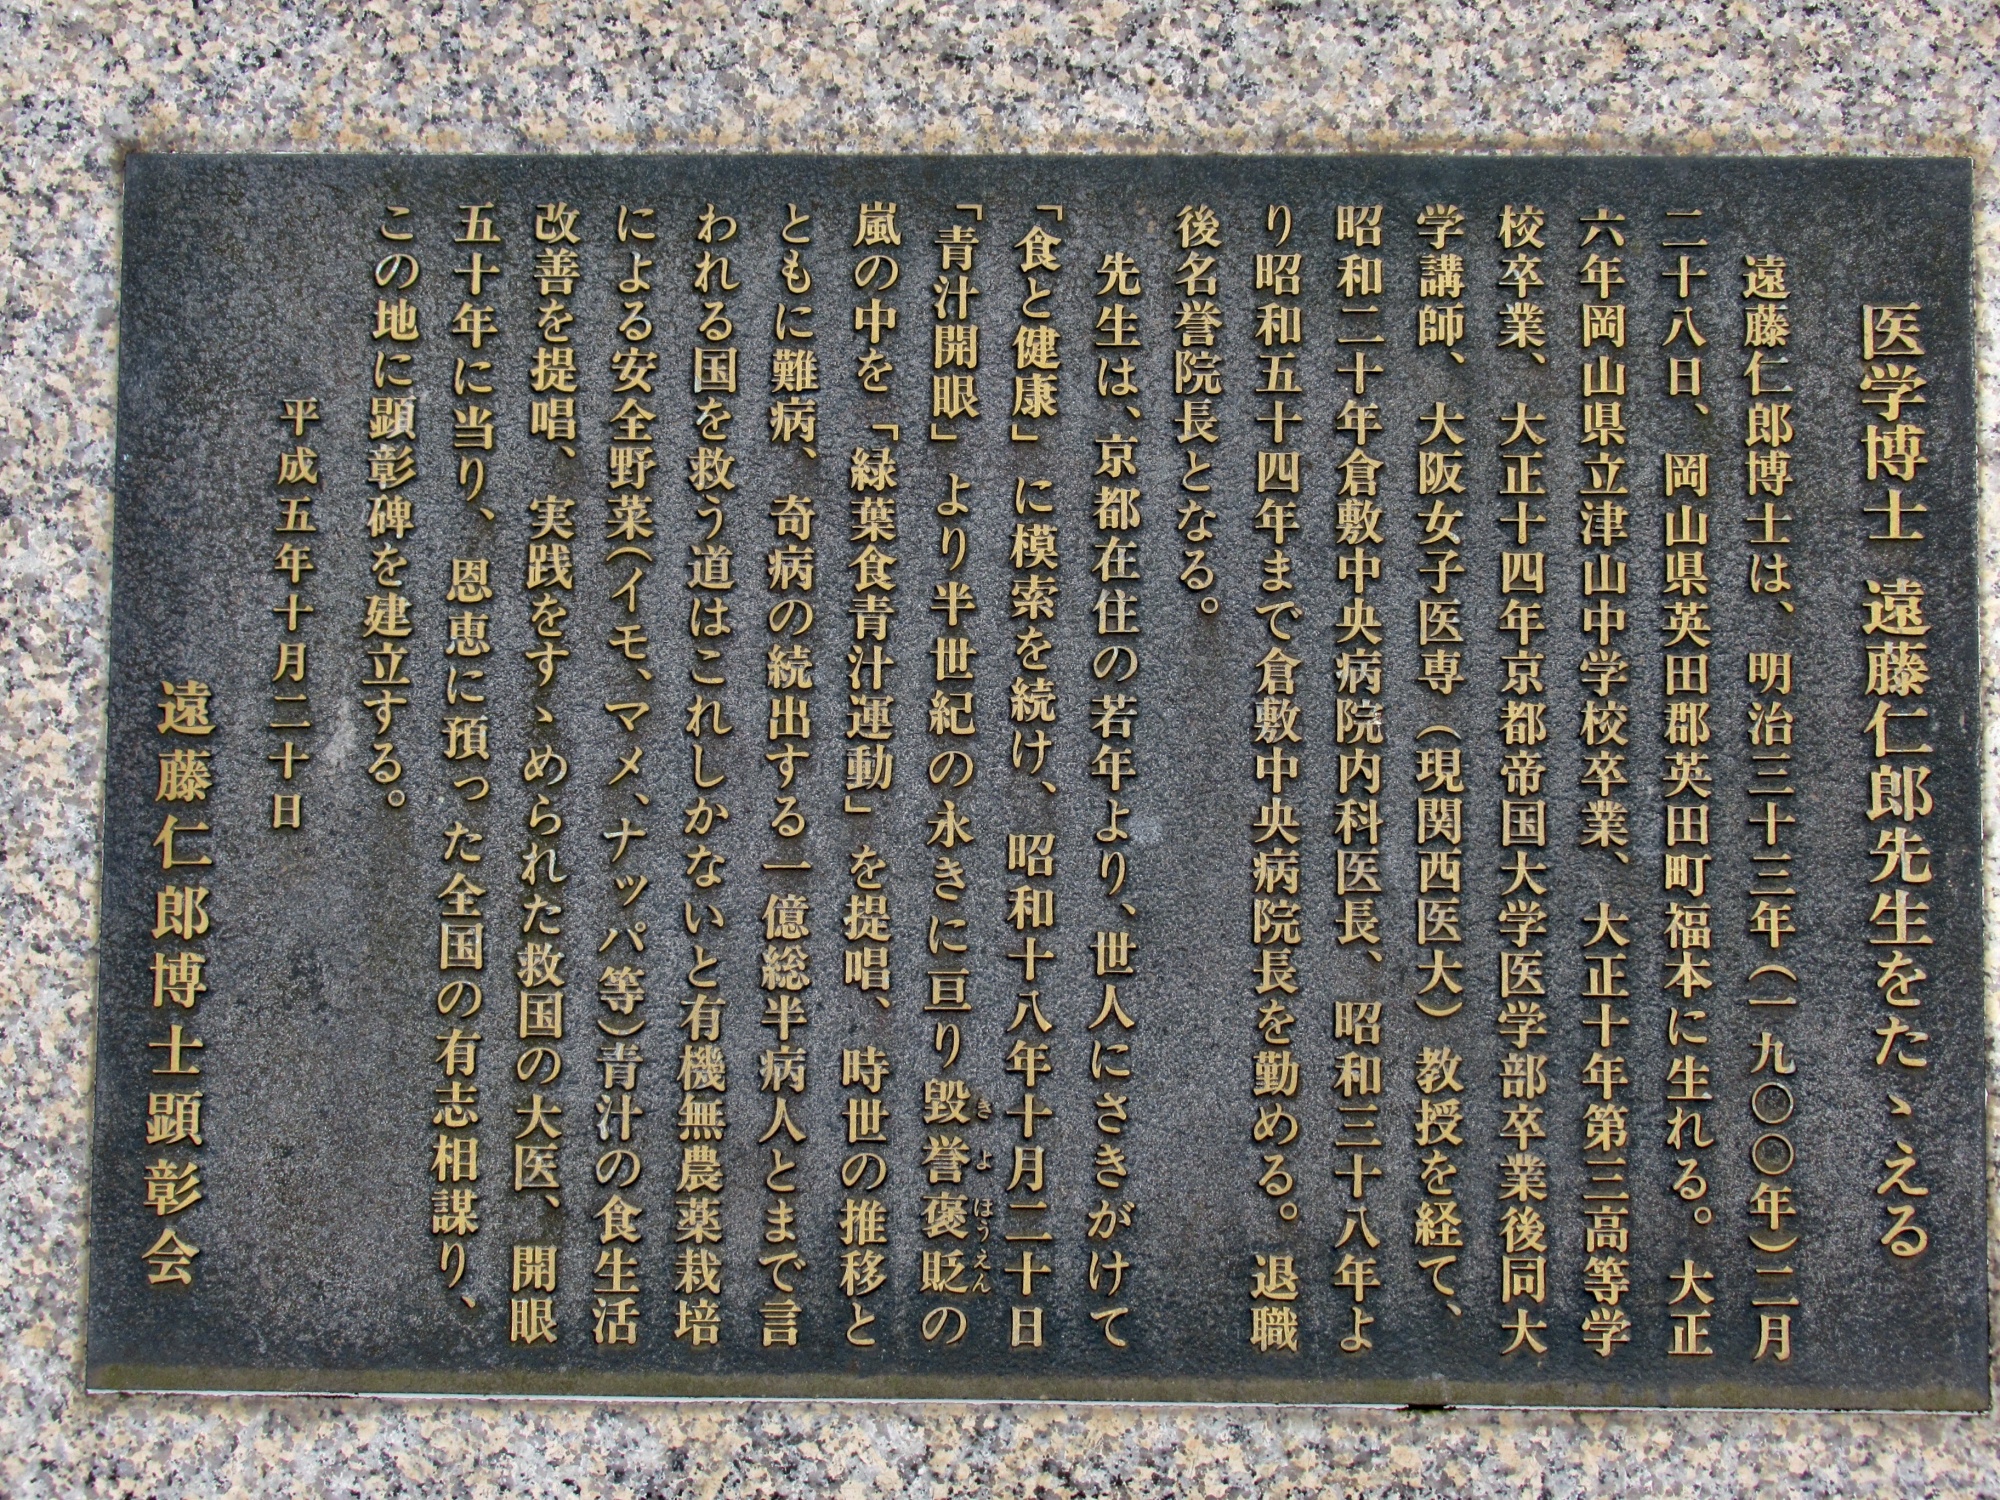 医学博士 遠藤仁郎先生をたゝえる
遠藤仁郎博士は、明治三十三年（一九〇〇年）二月
二十八日、岡山県英田郡英田町福本に生れる。大正
六年岡山県立津山中学校卒業、大正十年第三高等学
校卒業、大正十四年京都帝国大学医学部卒業後同大
学講師、大阪女子医専（現関西医大）教授を経て、
昭和二十年倉敷中央病院内科医長、昭和三十八年よ
り昭和五十四年まで倉敷中央病院長を勤める。退職
後名誉院長となる。
先生は、京都在住の若年より、世人にさきがけて
「食と健康」に模索を続け、昭和十八年十月二十日
「青汁開眼」より半世紀の永きに亘り毀誉褒貶の
きよほうえん
嵐の中を「緑葉食青汁運動」を提唱、時世の推移と
ともに難病、奇病の続出する一億総半病人とまで言
われる国を救う道はこれしかないと有機無農薬栽培
による安全野菜（イモ、マメ、ナッパ等）青汁の食生活
改善を提唱、実践をすゝめられた救国の大医、開眼
五十年に当り、恩恵に預った全国の有志相謀り、
この地に顕彰碑を建立する。
平成五年十月二十日
遠藤仁郎博士顕彰会